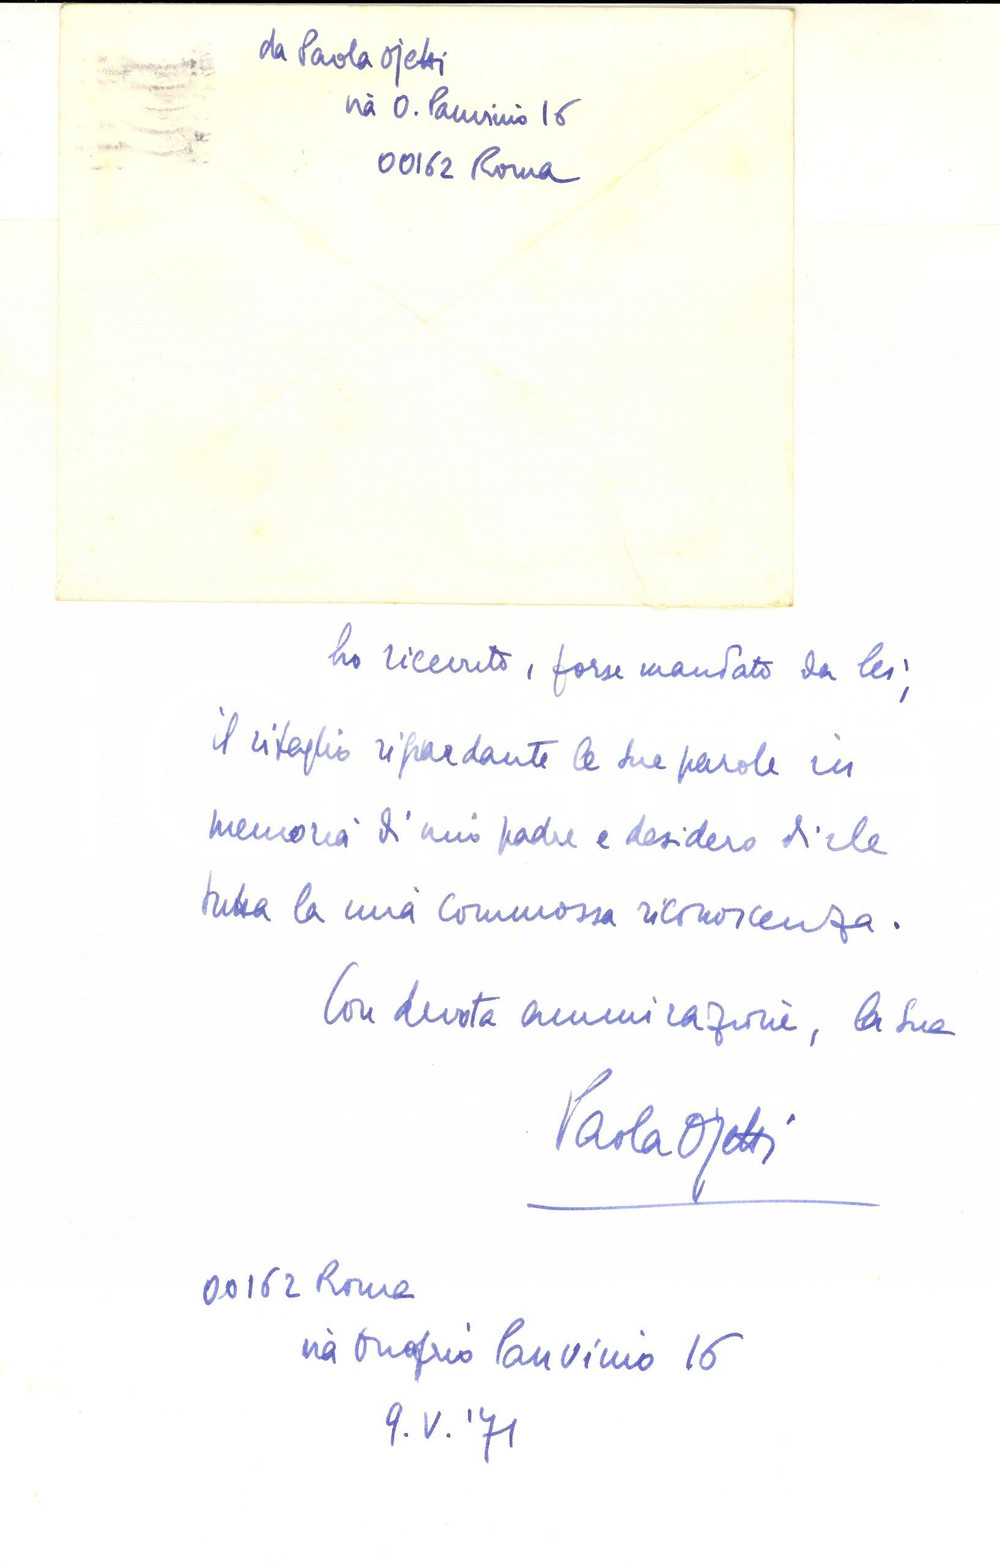 da Paola Ojetti
via O. Panvinio 16
00162 Roma
ho ricevuto, forse mandato da lei,
il ritaglio riguardante le sue parole in
memoria di mio padre e desidero dirle
tutta la mia commossa riconoscenza.
Con devota ammirazione, la sua
Paola Ojetti
00162 Roma
via Onofrio Panvinio 16
9. V. '71